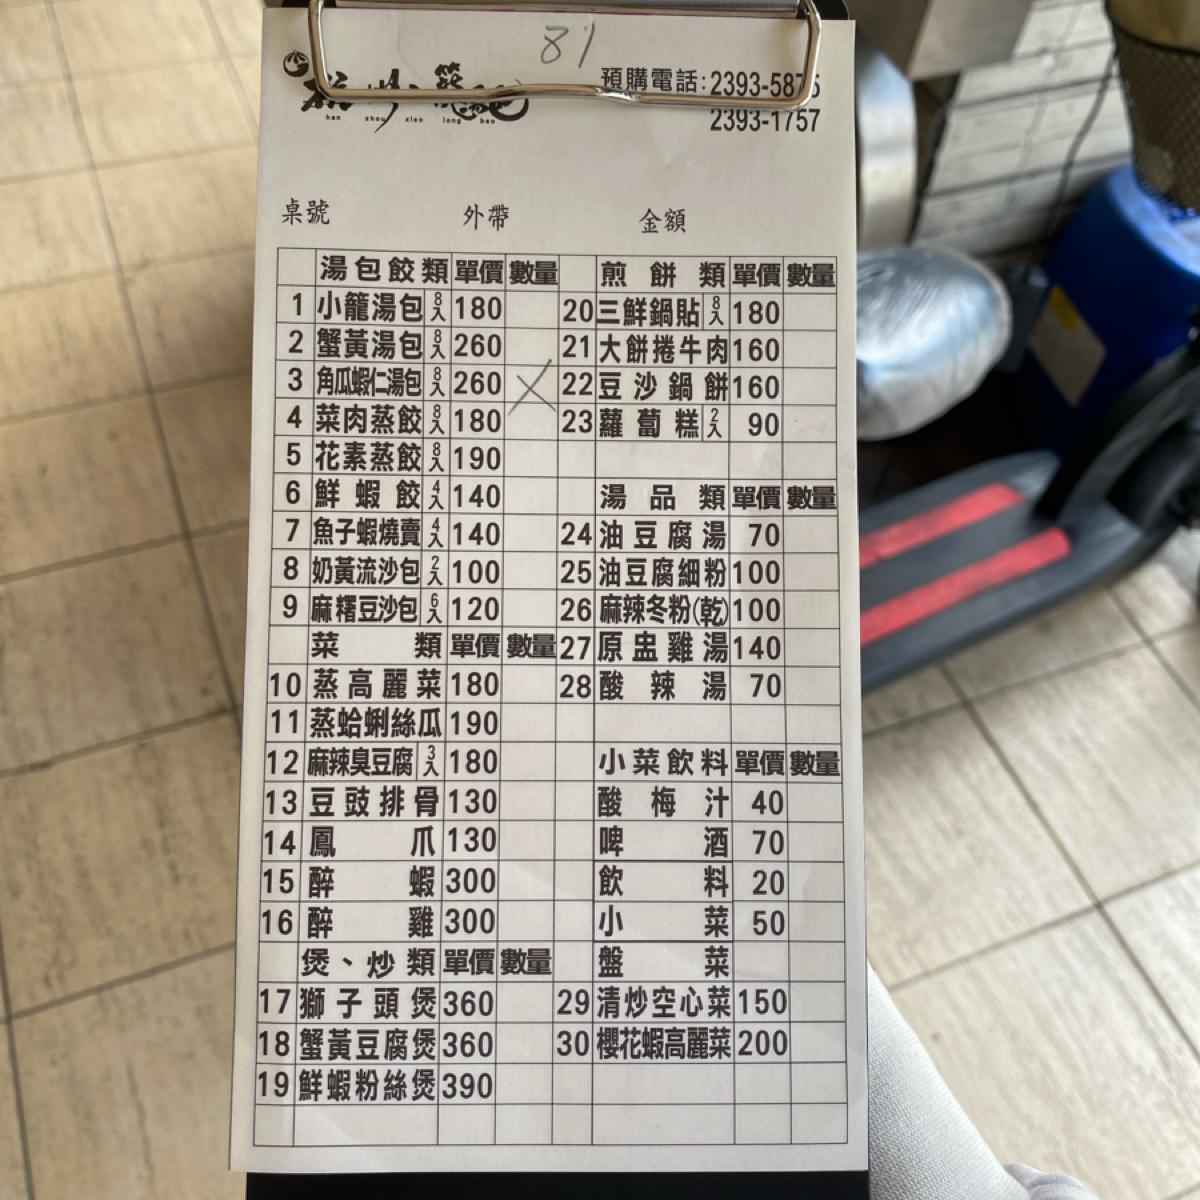 81
杭州小籠湯包
han zhou xiao long bao
預購電話:2393-5875
2393-1757
桌號 外帶 金額
湯包餃類 單價 數量
1 小籠湯包 8入 180
2 蟹黃湯包 8入 260
3 角瓜蝦仁湯包 8入 260 X
4 菜肉蒸餃 8入 180
5 花素蒸餃 8入 190
6 鮮蝦餃 4入 140
7 魚子蝦燒賣 4入 140
8 奶黃流沙包 2入 100
9 麻糬豆沙包 6入 120
菜類 單價 數量
10 蒸高麗菜 180
11 蒸蛤蜊絲瓜 190
12 麻辣臭豆腐 3入 180
13 豆豉排骨 130
14 鳳爪 130
15 醉蝦 300
16 醉雞 300
煲、炒類 單價 數量
17 獅子頭煲 360
18 蟹黃豆腐煲 360
19 鮮蝦粉絲煲 390
煎餅類 單價 數量
20 三鮮鍋貼 8入 180
21 大餅捲牛肉 160
22 豆沙鍋餅 160
23 蘿蔔糕 2入 90
湯品類 單價 數量
24 油豆腐湯 70
25 油豆腐細粉 100
26 麻辣冬粉(乾) 100
27 原盅雞湯 140
28 酸辣湯 70
小菜飲料 單價 數量
酸梅汁 40
啤酒 70
飲料 20
小菜 50
盤菜
29 清炒空心菜 150
30 櫻花蝦高麗菜 200